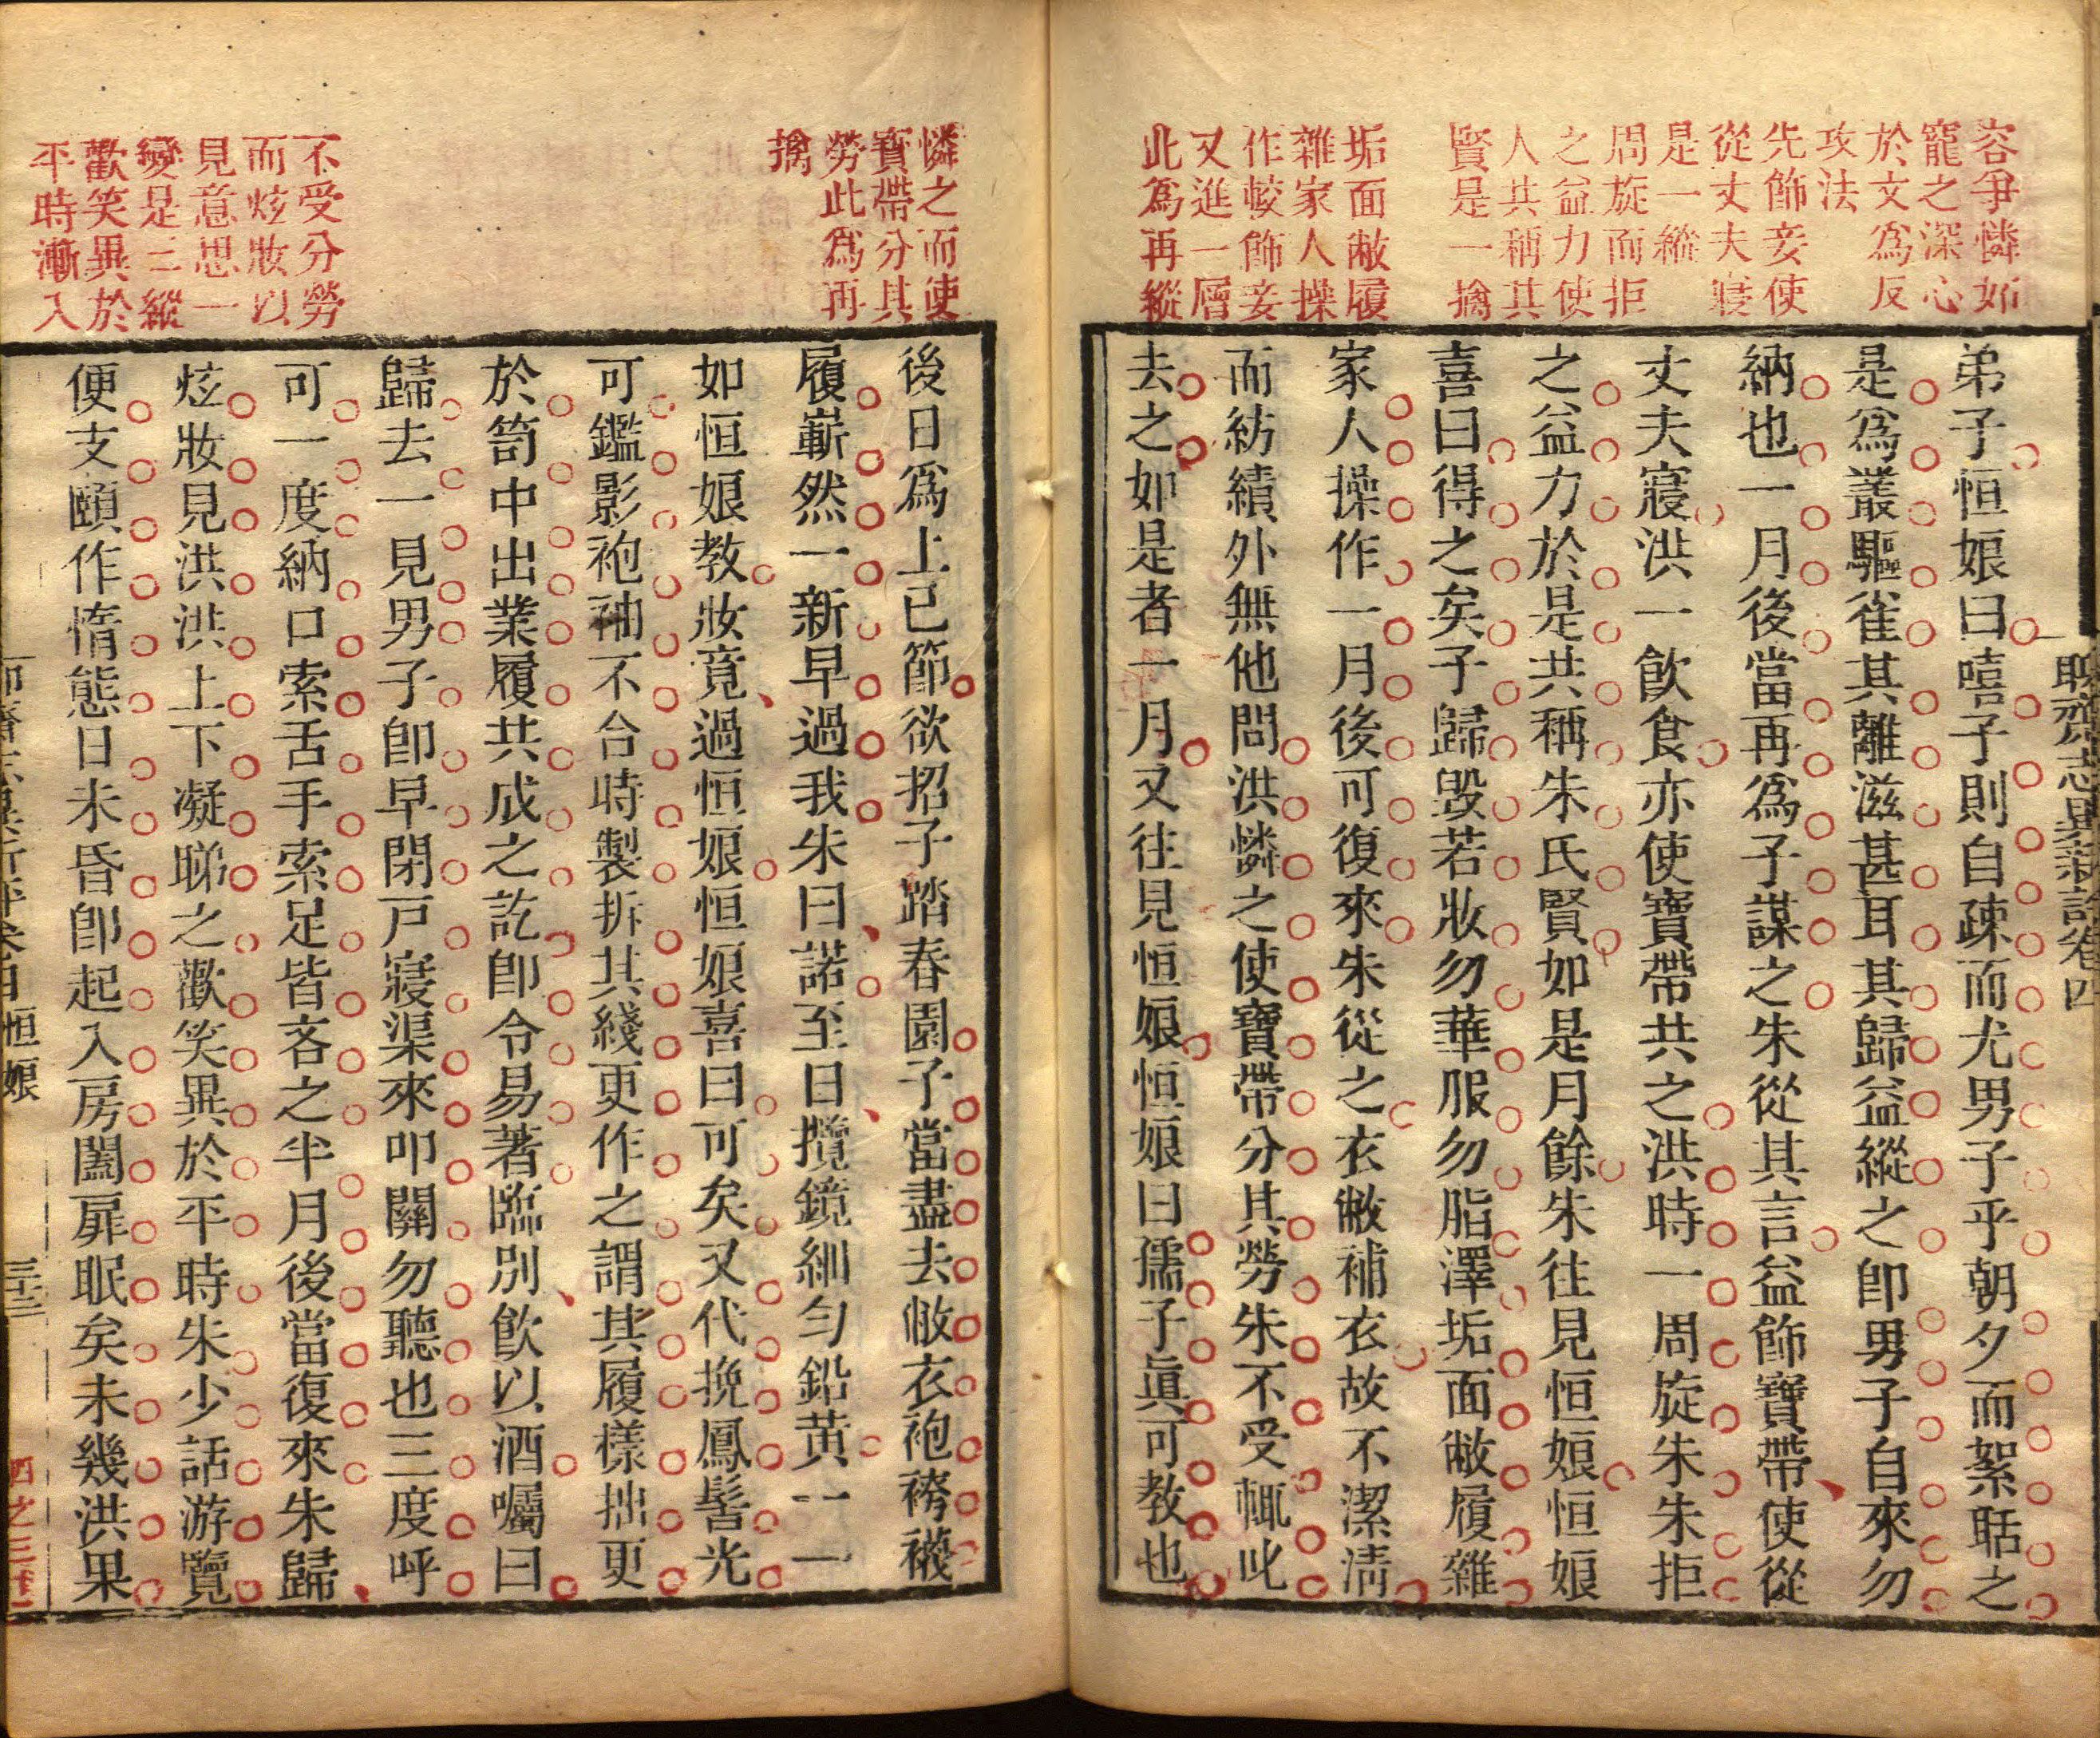 容爭憐妬
寵之深心
於文為反
攻法
先飾妾使
從丈夫寢
是一縱
周旋而拒
之益力使
人共稱其
賢是一擒
垢面敝履
雜家人操
作較飾妾
又進一層
此為再縱
聊齋志異新評卷四
弟子恒娘曰嘻子則自疎而尤男子乎朝夕而絮聒之
是爲叢驅雀其離滋甚耳其歸益縱之卽男子自來勿
納也一月後當再爲子謀之朱從其言益飾寶帶使從
丈夫寢洪一飮食亦使寶帶共之洪時一周旋朱朱拒
之益力於是共稱朱氏賢如是月餘朱往見恒娘恒娘
喜曰得之矣子歸毁若妝勿華服勿脂澤垢面敝履雜
家人操作一月後可復來朱從之衣敝補衣故不潔淸
而紡績外無他問洪憐之使寶帶分其勞朱不受輒叱
去之如是者一月又往見恒娘恒娘曰孺子眞可教也
憐之而使
寶帶分其
勞此為再
擒
不受分勞
而炫妝以
見意思一
變是三縱
歡笑異於
平時漸入
後日爲上巳節欲招子踏春園子當盡去敝衣袍袴襪
履嶄然一新早過我朱曰諾至日攬鏡細勻鉛黄一一
如恒娘教妝竟過恒娘恒娘喜曰可矣又代挽鳳髻光
可鑑影袍袖不合時製拆其綫更作之謂其履樣拙更
於笥中出業履共成之訖卽令易著臨別飮以酒囑曰
歸去一見男子卽早閉戸寢渠來叩關勿聽也三度呼
可一度納口索舌手索足皆吝之半月後當復來朱歸
炫妝見洪洪上下凝睇之歡笑異於平時朱少話游覽
便支頤作惰態日未昏卽起入房闔扉眠矣未幾洪果
恒娘
三十三
四之三十三